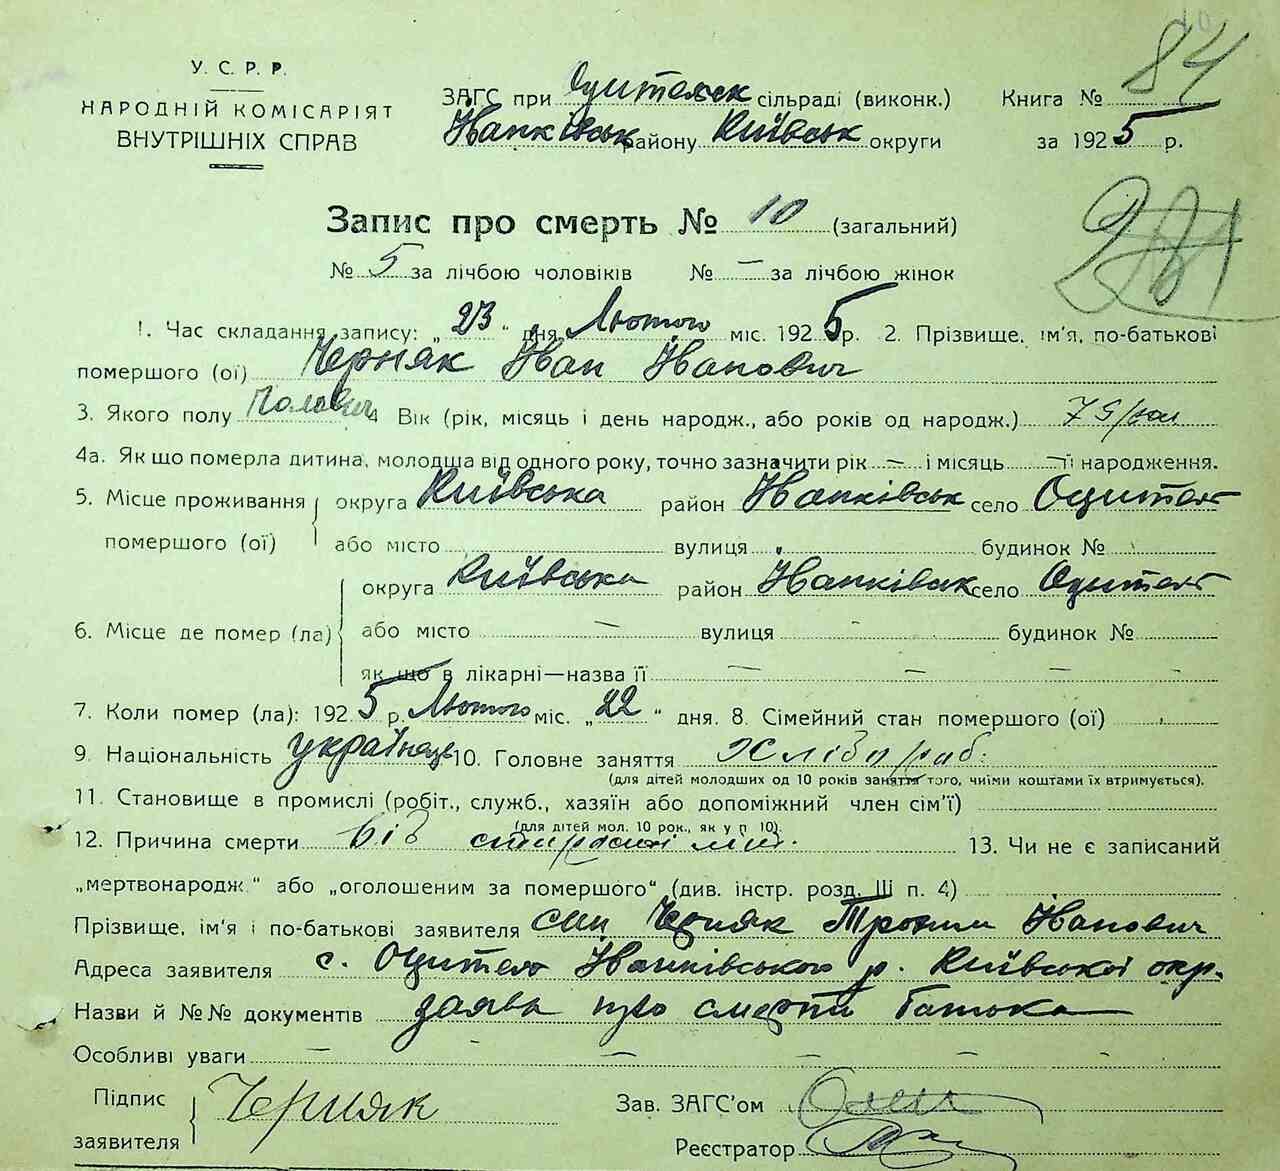 84
У. С. Р. Р.
НАРОДНІЙ КОМІСАРІЯТ
ВНУТРІШНІХ СПРАВ
ЗАГС при Одительск сільраді (виконк.) Книга №
Іванківськ району Київськ округи за 1925 р.
Запис про смерть № 10 (загальний)
№ 5 за лічбою чоловіків № — за лічбою жінок
1. Час складання запису: „23" дня Лютого міс. 1925 р. 2. Прізвище, ім'я, по-батькові
помершого (ої) Черняк Іван Іванович
3. Якого полу 4 Вік (рік, місяць і день народж., або років од народж.) 75
4а. Як що померла дитина, молодша від одного року, точно зазначити рік — і місяць — її народження.
5. Місце проживання помершого (ої) округа Київська район Іванківськ село Одител
або місто вулиця будинок №
6. Місце де помер (ла) округа Київська район Іванківськ село Одител
або місто — вулиця — будинок №
як що в лікарні—назва її — — —
7. Коли помер (ла): 1925 р. Лютого міс. „22" дня. 8. Сімейний стан помершого (ої)
9. Національність українець 10. Головне заняття хлібороб.
(для дітей молодших од 10 років заняття того, чиїми коштами їх втримується).
11. Становище в промислі (робіт., служб., хазяїн або допоміжний член сім'ї)
(для дітей мол. 10 рок., як у п 10).
12. Причина смерти від старості 13. Чи не є записаний
„мертвонародж." або „оголошеним за помершого" (див. інстр. розд. III п. 4)
Прізвище, ім'я і по-батькові заявителя син Черняк Трохим Іванович
Адреса заявителя с. Одител Іванківського р. Київської окр.
Назви й №№ документів заява про смерть батька
Особливі уваги — — — — —
Підпис заявителя Черняк
Зав. ЗАГС'ом
Реєстратор